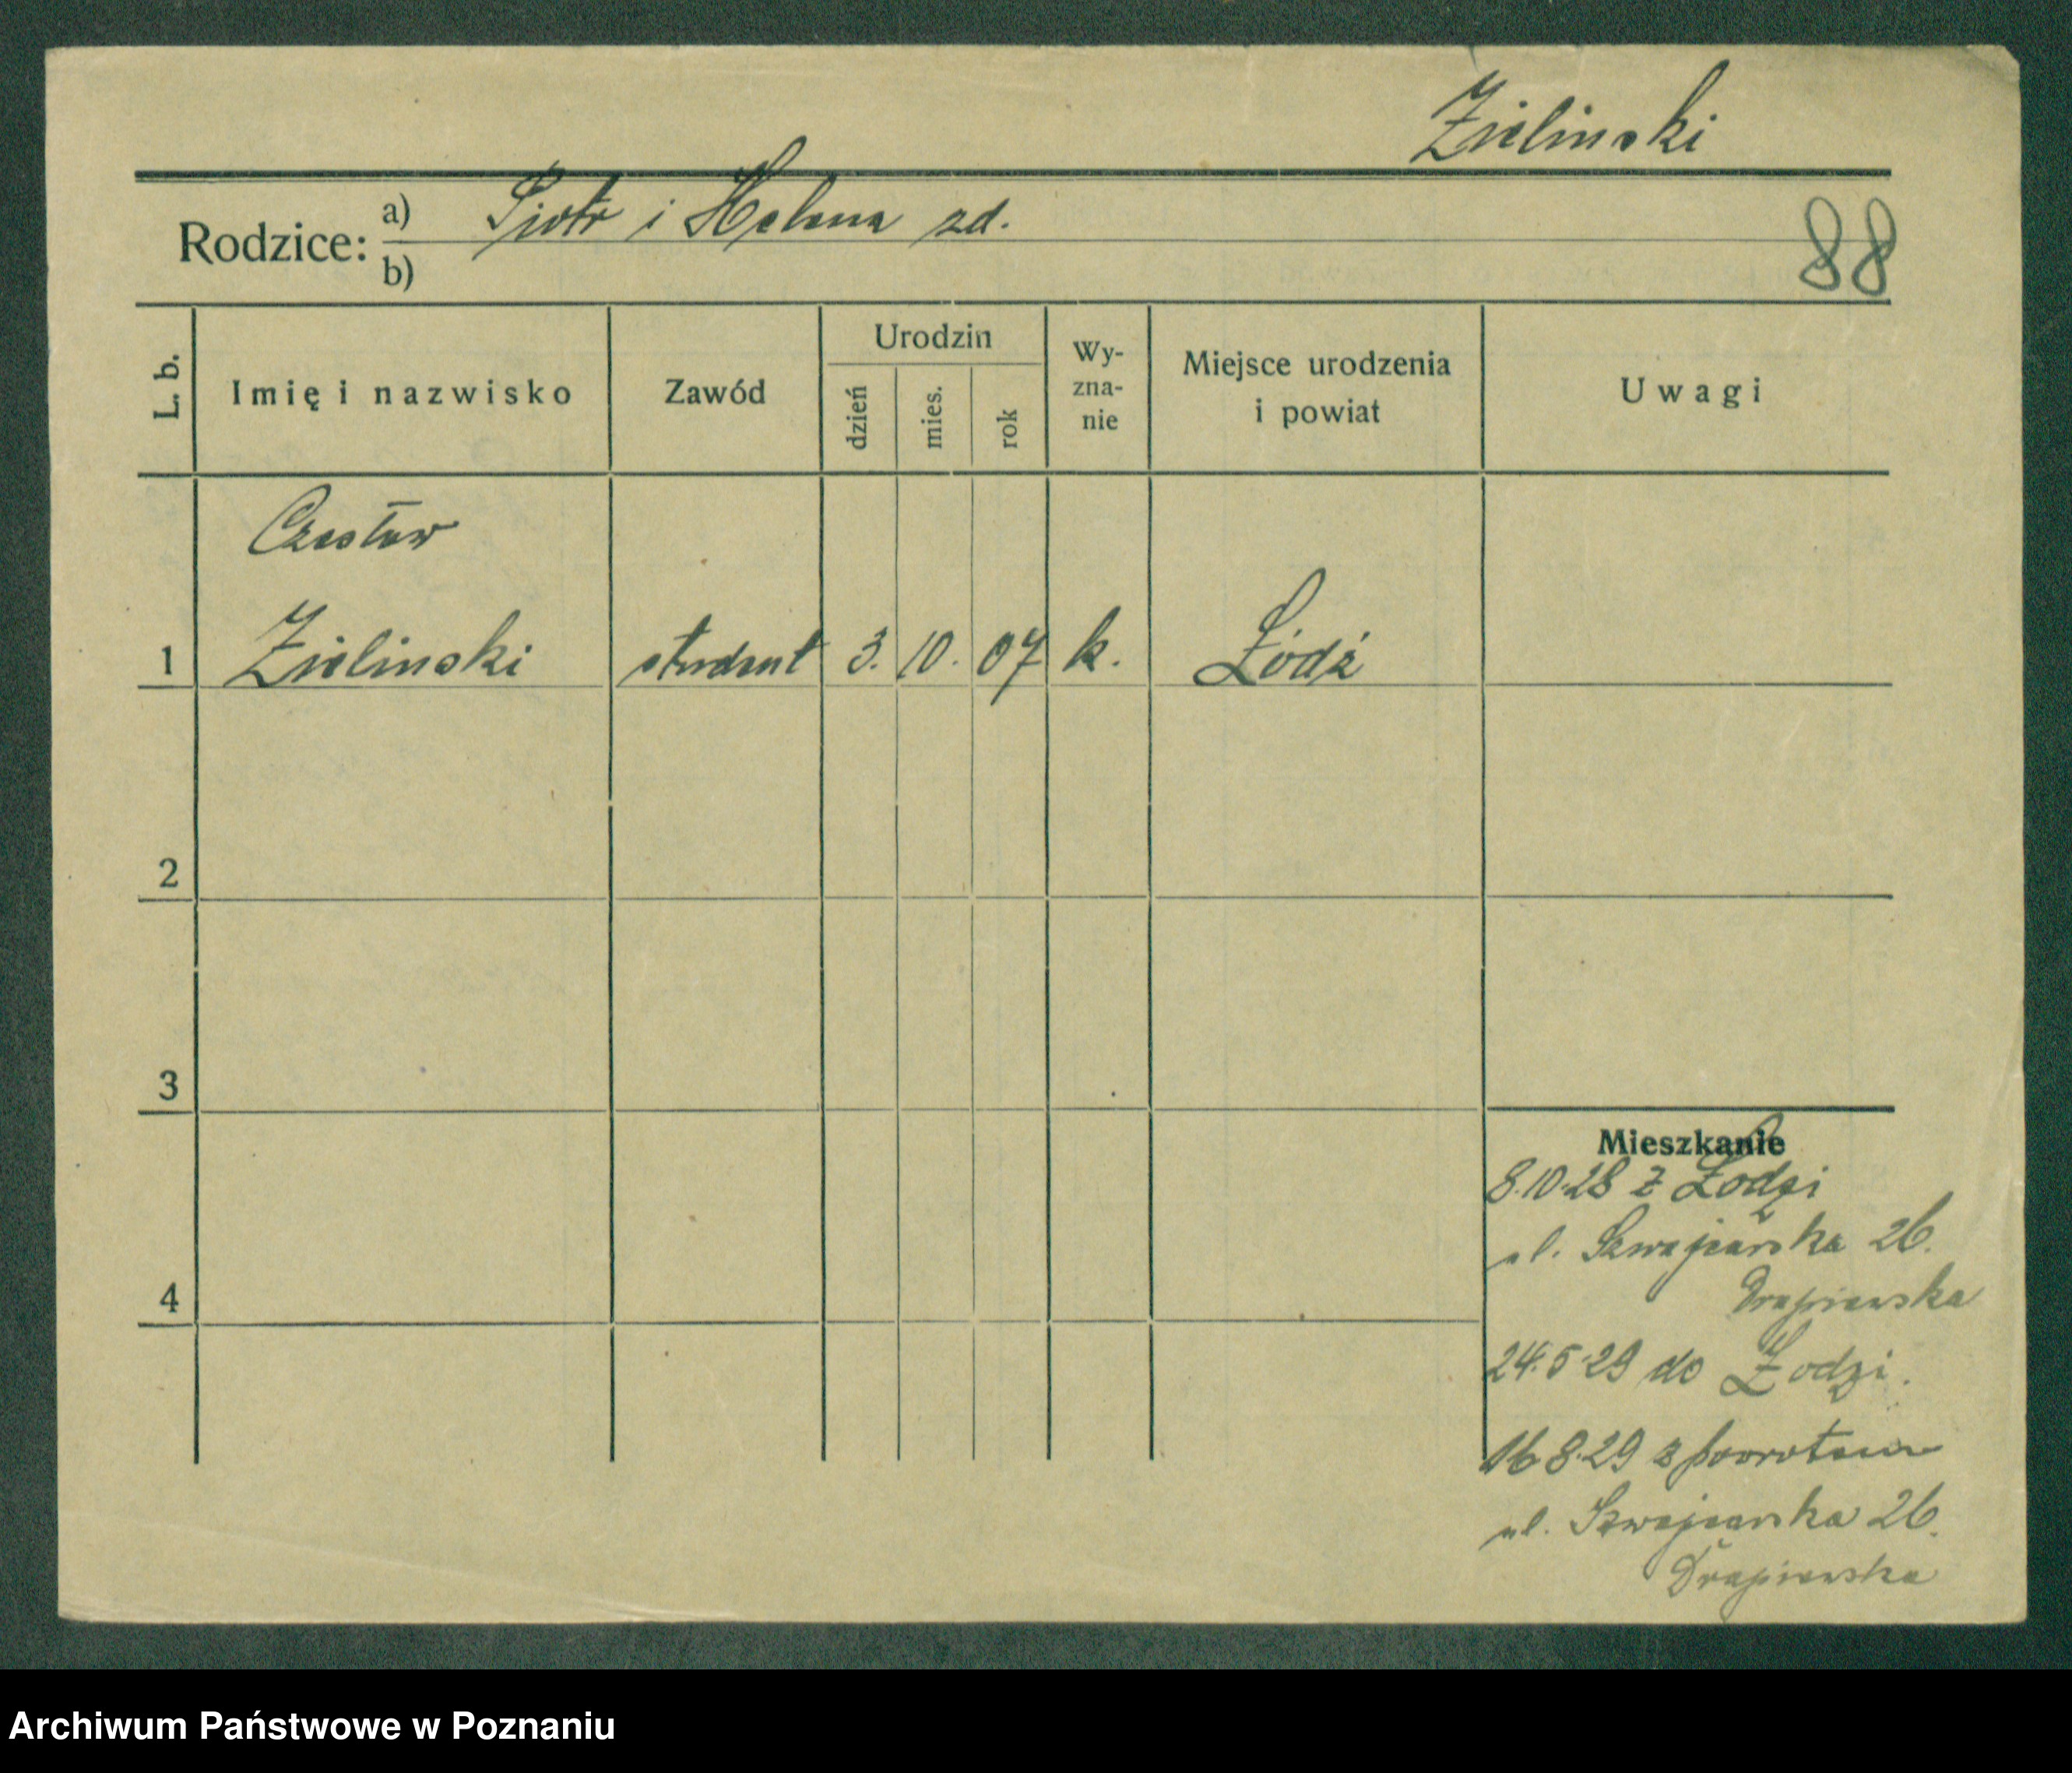 Zielinski
Rodzice: a) Piotr i Helena zd.
b)
88
L. b.
Imię i nazwisko
Zawód
Urodzin
dzień
mies.
rok
Wy-
zna-
nie
Miejsce urodzenia
i powiat
Uwagi
Czesław
1 Zielinski student 3. 10. 07 k. Łódź
2
3
4
Mieszkanie
8.10.28 z Łodzi
ul. Szwajcarska 26.
Drapiewska
24.5.29 do Łodzi.
16.8.29 z powrotem
ul. Szwajcarska 26.
Drapiewska
Archiwum Państwowe w Poznaniu